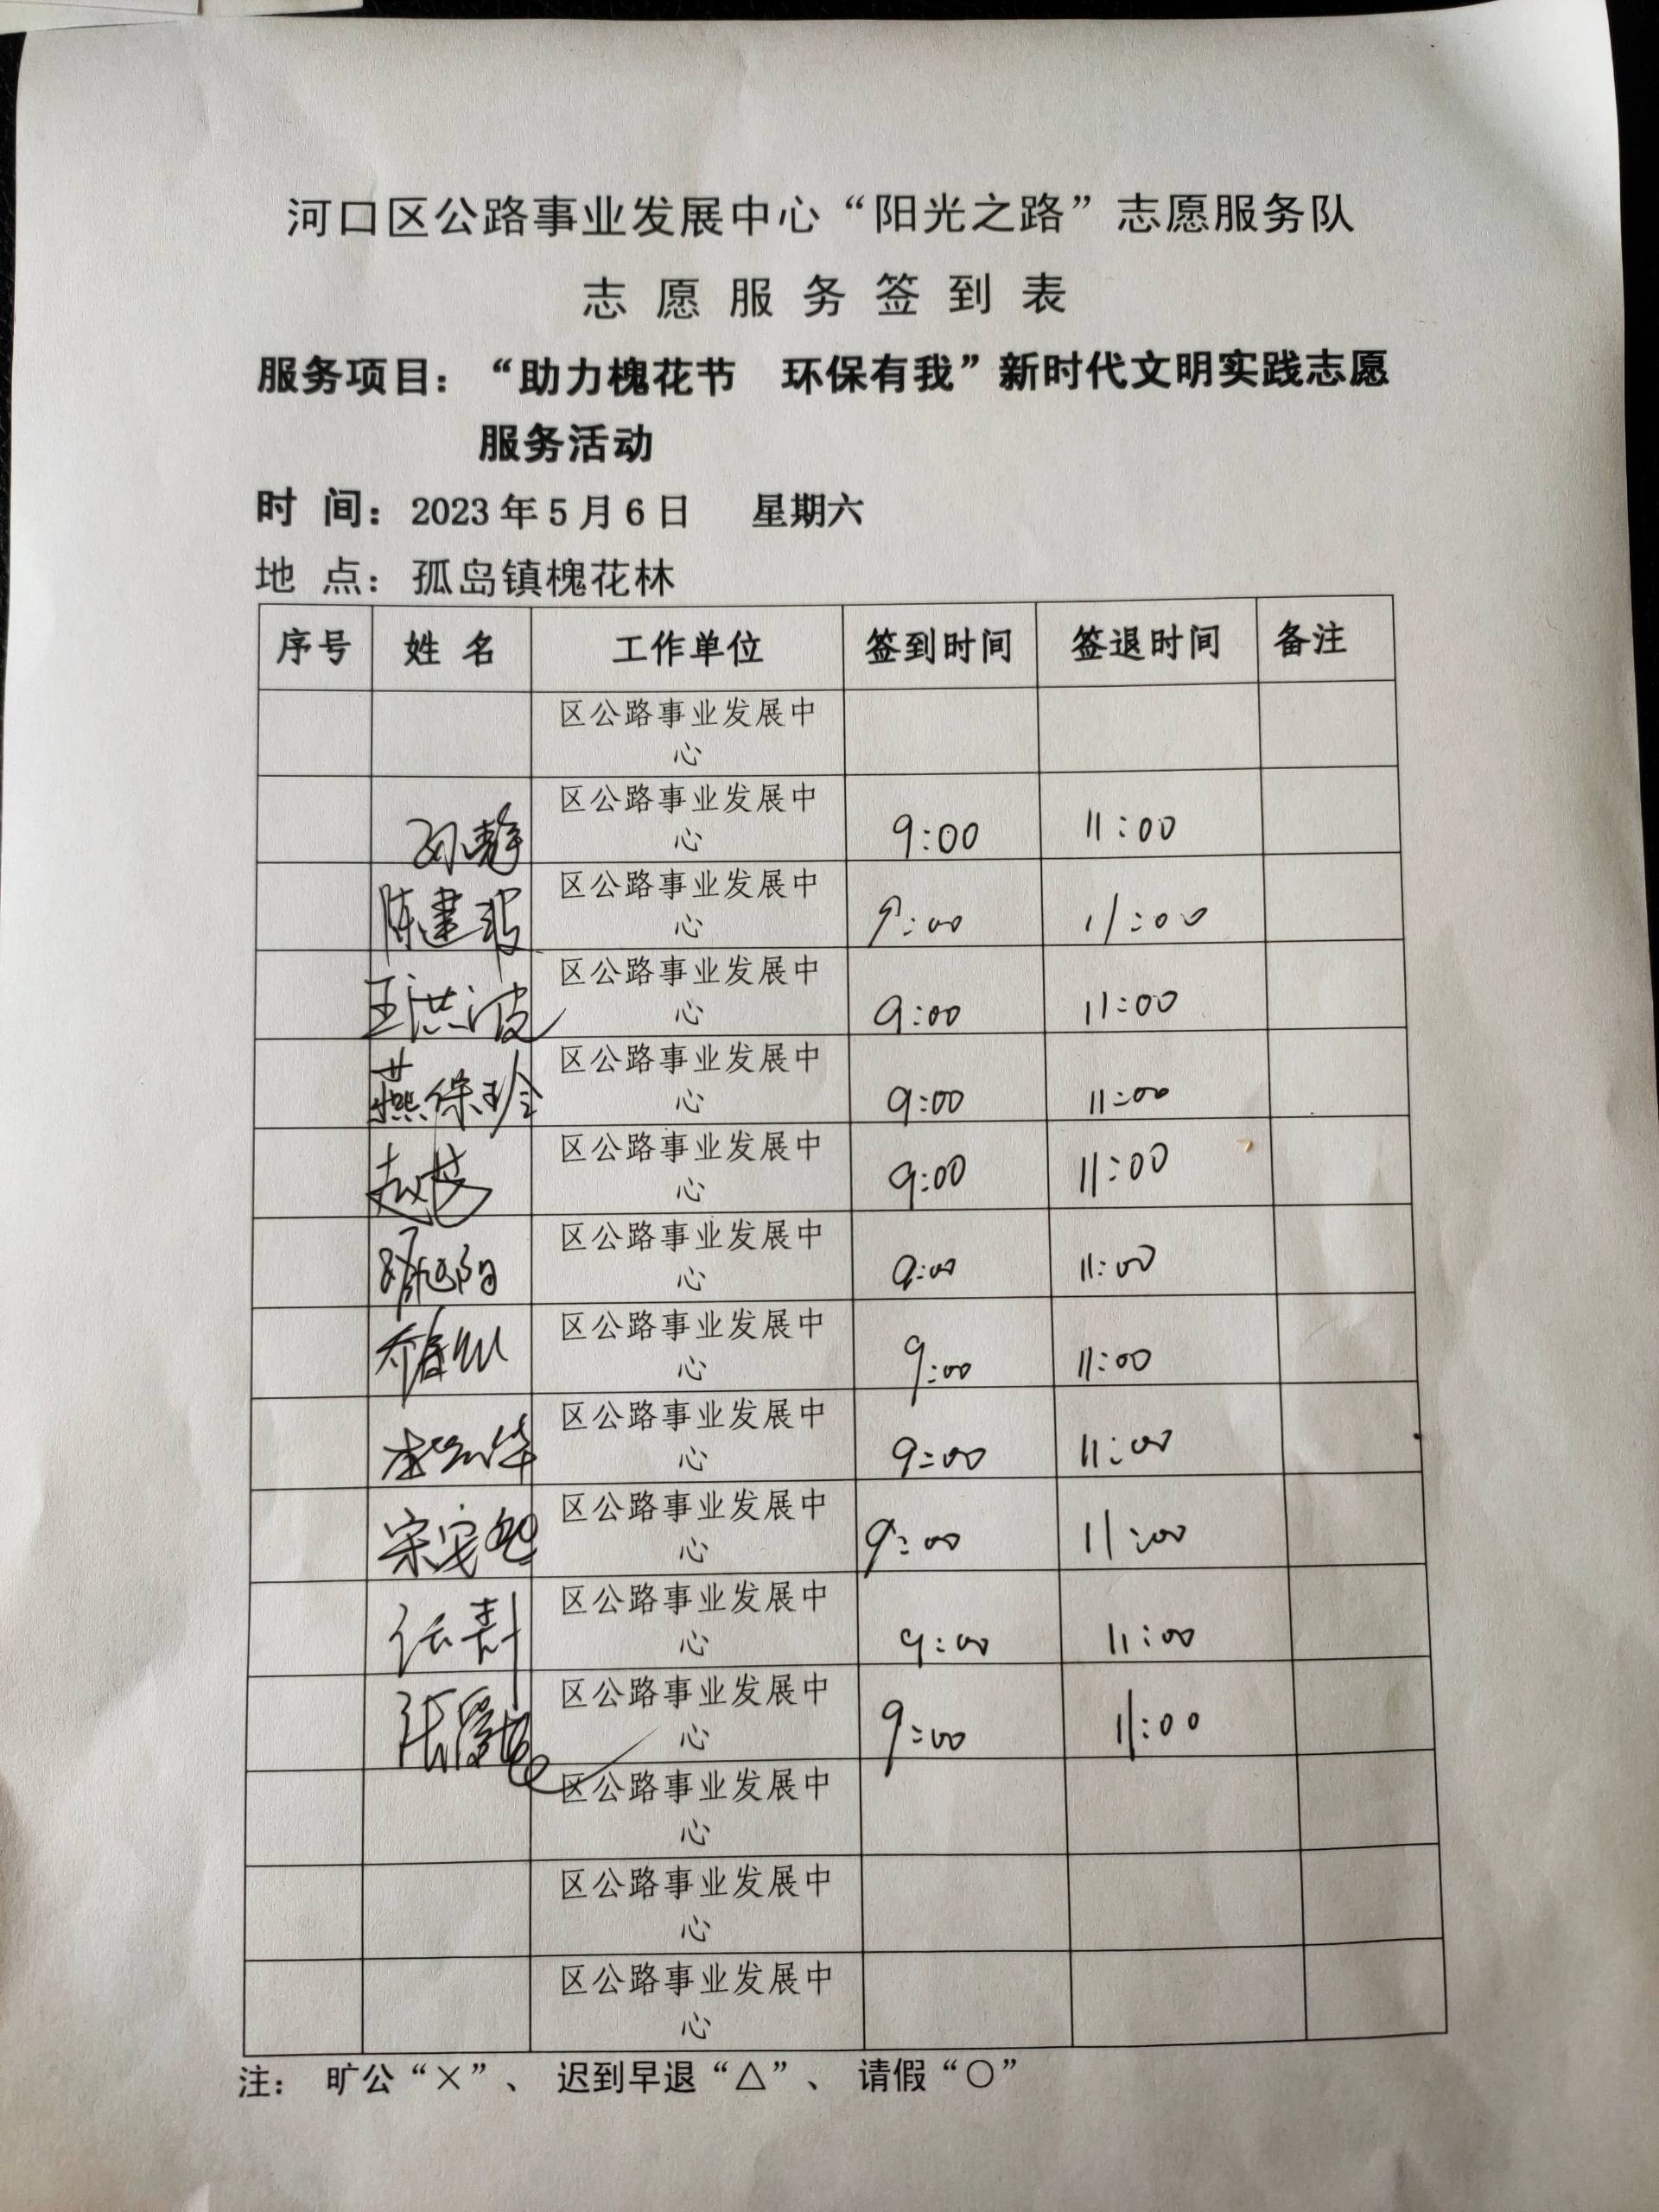 河口区公路事业发展中心“阳光之路”志愿服务队
志愿服务签到表
服务项目：“助力槐花节 环保有我”新时代文明实践志愿
服务活动
时 间：2023年5月6日 星期六
地 点：孤岛镇槐花林
序号 姓 名 工作单位 签到时间 签退时间 备注
区公路事业发展中
心
区公路事业发展中
孙静 心 9:00 11:00
区公路事业发展中
陈建 心 9:00 11:00
区公路事业发展中
王洪波 心 9:00 11:00
区公路事业发展中
燕保珍 心 9:00 11:00
区公路事业发展中
赵 心 9:00 11:00
区公路事业发展中
旭阳 心 9:00 11:00
区公路事业发展中
心 9:00 11:00
区公路事业发展中
李 华 心 9:00 11:00
区公路事业发展中
宋 心 9:00 11:00
区公路事业发展中
任 心 9:00 11:00
区公路事业发展中
张 心 9:00 11:00
区公路事业发展中
心
区公路事业发展中
心
区公路事业发展中
心
注： 旷公“×”、 迟到早退“△”、 请假“○”